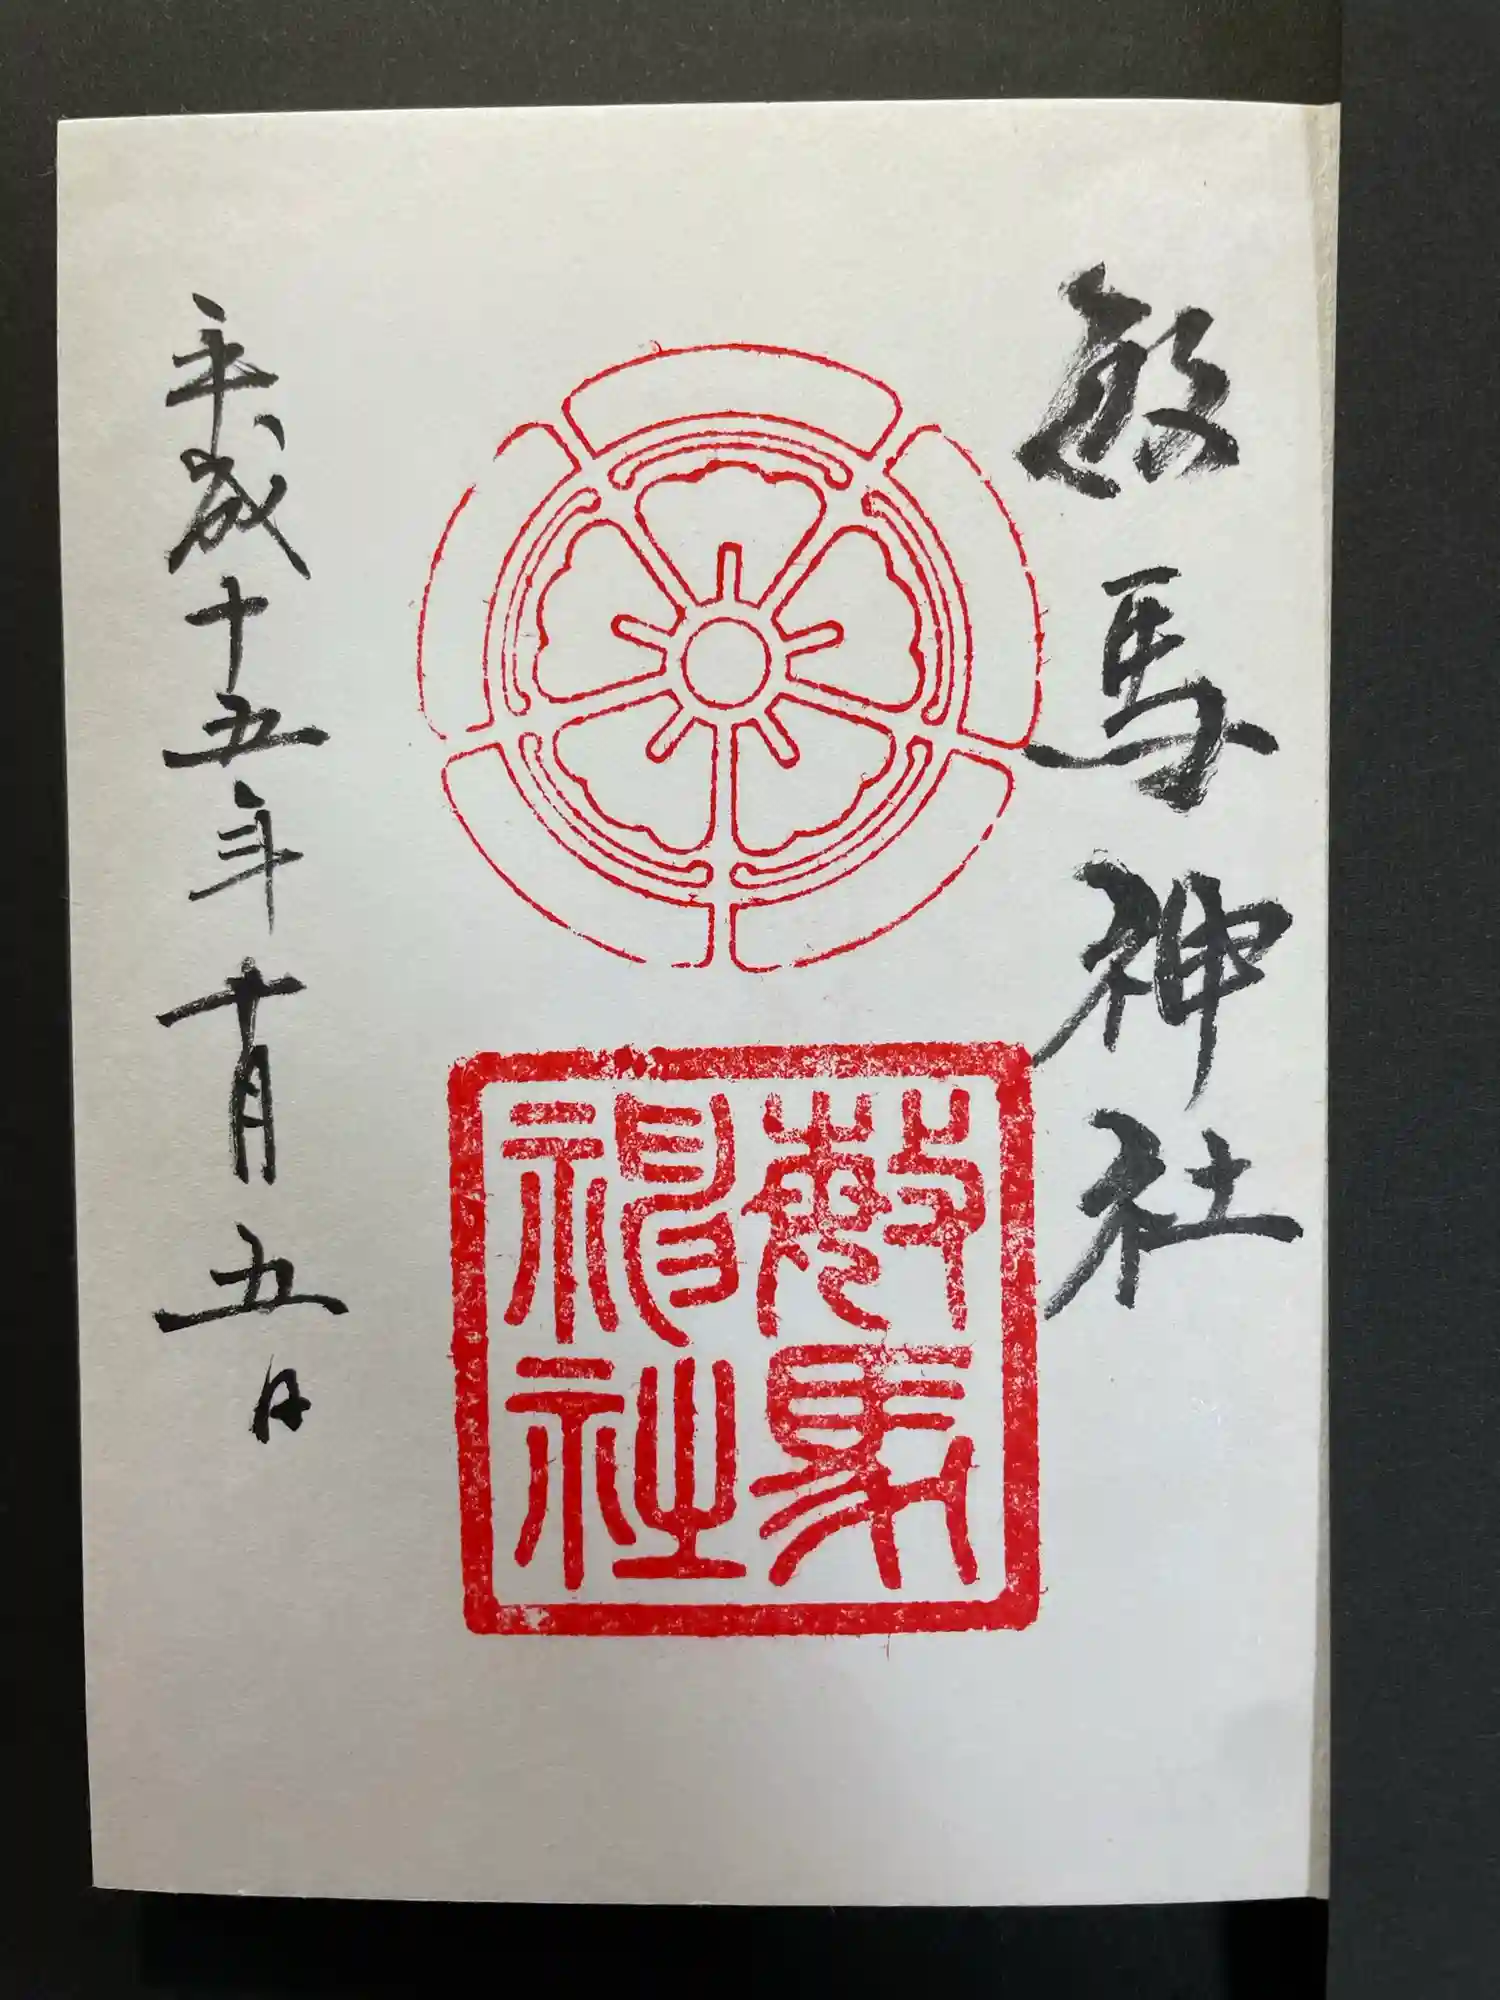 敏馬神社
敏馬
神社
平成十五年十月五日